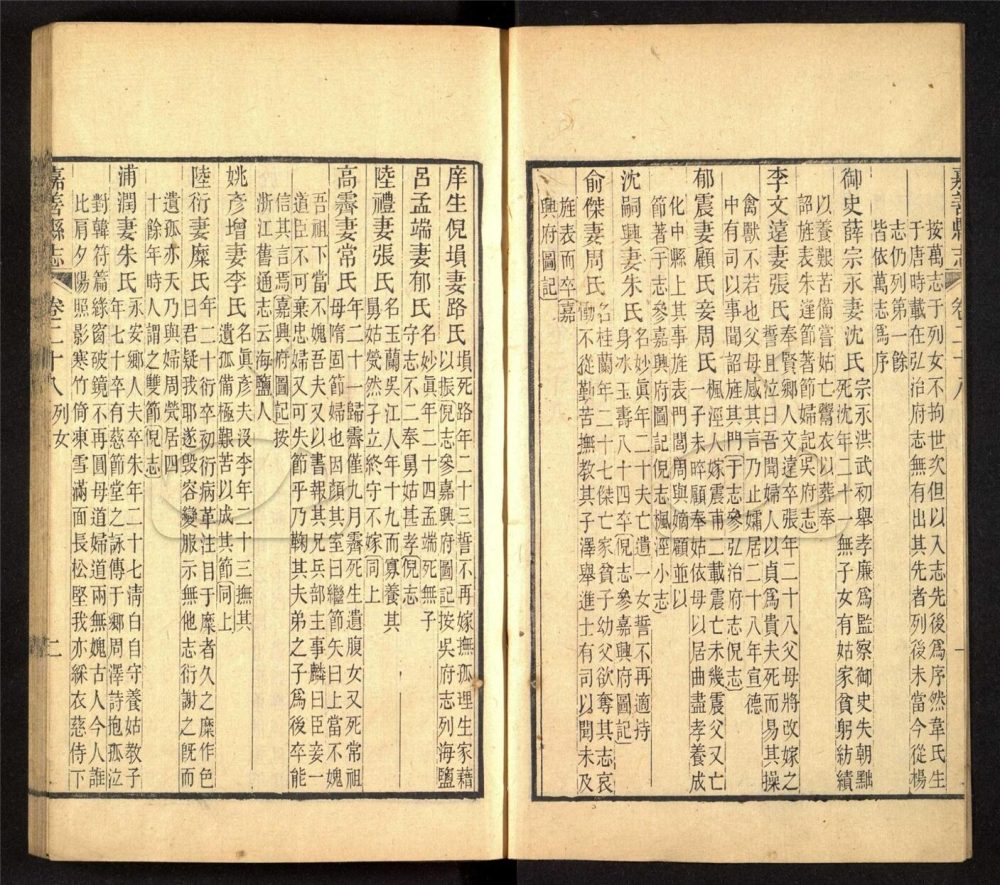 嘉善縣志 卷二十八 一
按萬志于列女不拘世次但以入志先後爲序然韋氏生
于唐時載在弘治府志無有出其先者列後未當今從楊
志仍列第一餘
皆依萬志爲序
御史薛宗永妻沈氏
宗永洪武初舉孝廉爲監察御史失朝黜
死沈年二十一無子女有姑家貧躬紡績
以養艱苦備嘗姑亡鬻衣以葬奉
詔旌表朱逢節著節婦記吳府志
李文遠妻張氏
奉賢鄉人文遠卒張年二十八父母將改嫁之
誓且泣曰吾聞婦人以貞爲貴夫死而易其操
禽獸不若也父母感其言乃止孀居二十八年宣德
中有司以事聞詔旌其門于志參弘治府志倪志
郁震妻顧氏妾周氏
楓涇人嫁震甫二載震亡未幾震父又亡
一子未晬顧奉姑依母以居曲盡孝養成
化中縣上其事旌表門閭周與嫡顧並以
節著于志參嘉興府圖記倪志楓涇小志
沈嗣興妻朱氏
名妙眞年二十夫亡遺一女誓不再適持
身氷玉壽八十四卒倪志參嘉興府圖記
俞傑妻周氏
名桂蘭年二十七傑亡家貧子幼父欲奪其志哀
慟不從勤苦撫教其子澤舉進士有司以聞未及
旌表而卒嘉
興府圖記
庠生倪塤妻路氏
塤死路年二十三誓不再嫁撫孤理生家藉
以振倪志參嘉興府圖記按吳府志列海鹽
呂孟端妻郁氏
名妙眞年二十四孟端死無子
守志不二奉舅姑甚孝倪志
陸禮妻張氏
名玉蘭吳江人年十九而寡養其
舅姑煢然孑立終守不嫁同上
高霽妻常氏
年二十一歸霽僅九月霽死生遺腹女又死常祖
母隋固節婦也因顏其室曰繼節矢曰上當不媿
吾祖下當不媿吾夫又以書報其兄兵部主事麟曰臣妾一
道臣不可棄忠婦又可失節乎乃鞠其夫弟之子爲後卒能
信其言焉嘉興府圖記按
浙江舊通志云海鹽人
姚彥增妻李氏
名眞彥夫没李年二十三撫其
遺孤備極艱苦以成其節同上
陸衍妻糜氏
年二十衍卒初衍病革注目于糜者久之糜作色
曰君疑我耶遂毀容變服示無他志衍謝之旣而
遺孤亦夭乃與婦周煢居四
十餘年時人謂之雙節倪志
浦潤妻朱氏
永安鄉人夫卒朱年二十七清白自守養姑教子
年七十卒有慈節堂之詠傳于鄉周澤詩抱孤泣
對韓符篇緑窗破鏡不再圓母道婦道兩無媿古人今人誰
比肩夕陽照影寒竹倚東雪滿面長松堅我亦綵衣慈侍下
嘉善縣志 卷二十八 列女 二